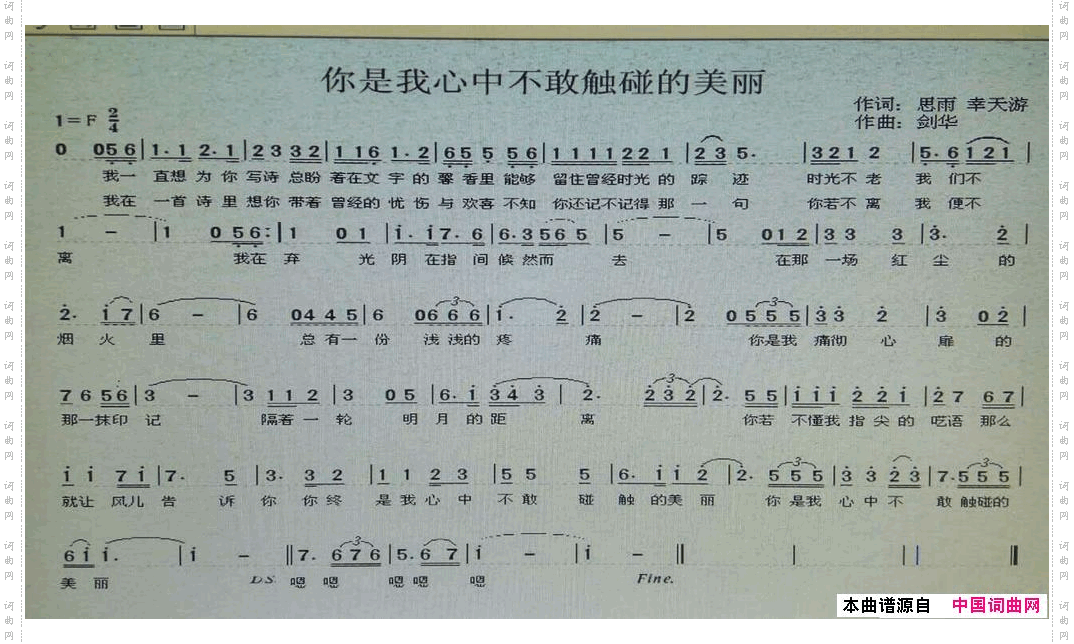 你是我心中不敢触碰的美丽
作词：思雨 幸天游
作曲：剑华
1=F 2/4
0 056|1·1 2·1|23 32|116 1·2|65 5 56|1111221|23 5·|321 2|5·6121|
我一 直想 为 你 写诗 总盼 着在文 字的 馨 香里 能够 留住曾经时光的 踪 迹 时光不 老 我 们不
我在 一首 诗 里 想你 带着 曾经的 忧伤 与 欢喜 不知 你还记不记得那 一 句 你若不 离 我 便不
1 －|1 056:|1 01|i·i7·6|6·3565|5 －|5 012|33 3|3· 2|
离 我在 弃 光 阴 在指 间 候 然而 去 在那 一场 红 尘 的
2· i7|6 －|6 0445|6 0666|i· 2|2 －|2 0555|33 2|3 02|
烟 火 里 总 有一 份 浅 浅的 疼 痛 你是我 痛彻 心 扉 的
7656|3 －|3 112|3 05|6·i343|2· 232|2· 55|iii 22i|27 67|
那一抹印 记 隔着 一 轮 明 月 的 距 离 你若 不懂我 指 尖 的 呓语 那么
ii 7i|7· 5|3· 32|11 23|55 5|6·ii2|2·555|33 23|7·555|
就让 风儿 告 诉 你 你终 是 我 心 中 不敢 碰 触 的美 丽 你 是我 心 中 不 敢 触碰的
6i i·|i －||7· 676|5·67|i －|i －||
美 丽 D.S. 嗯 嗯 嗯 嗯 嗯 Fine.
本曲谱源自 中国词曲网